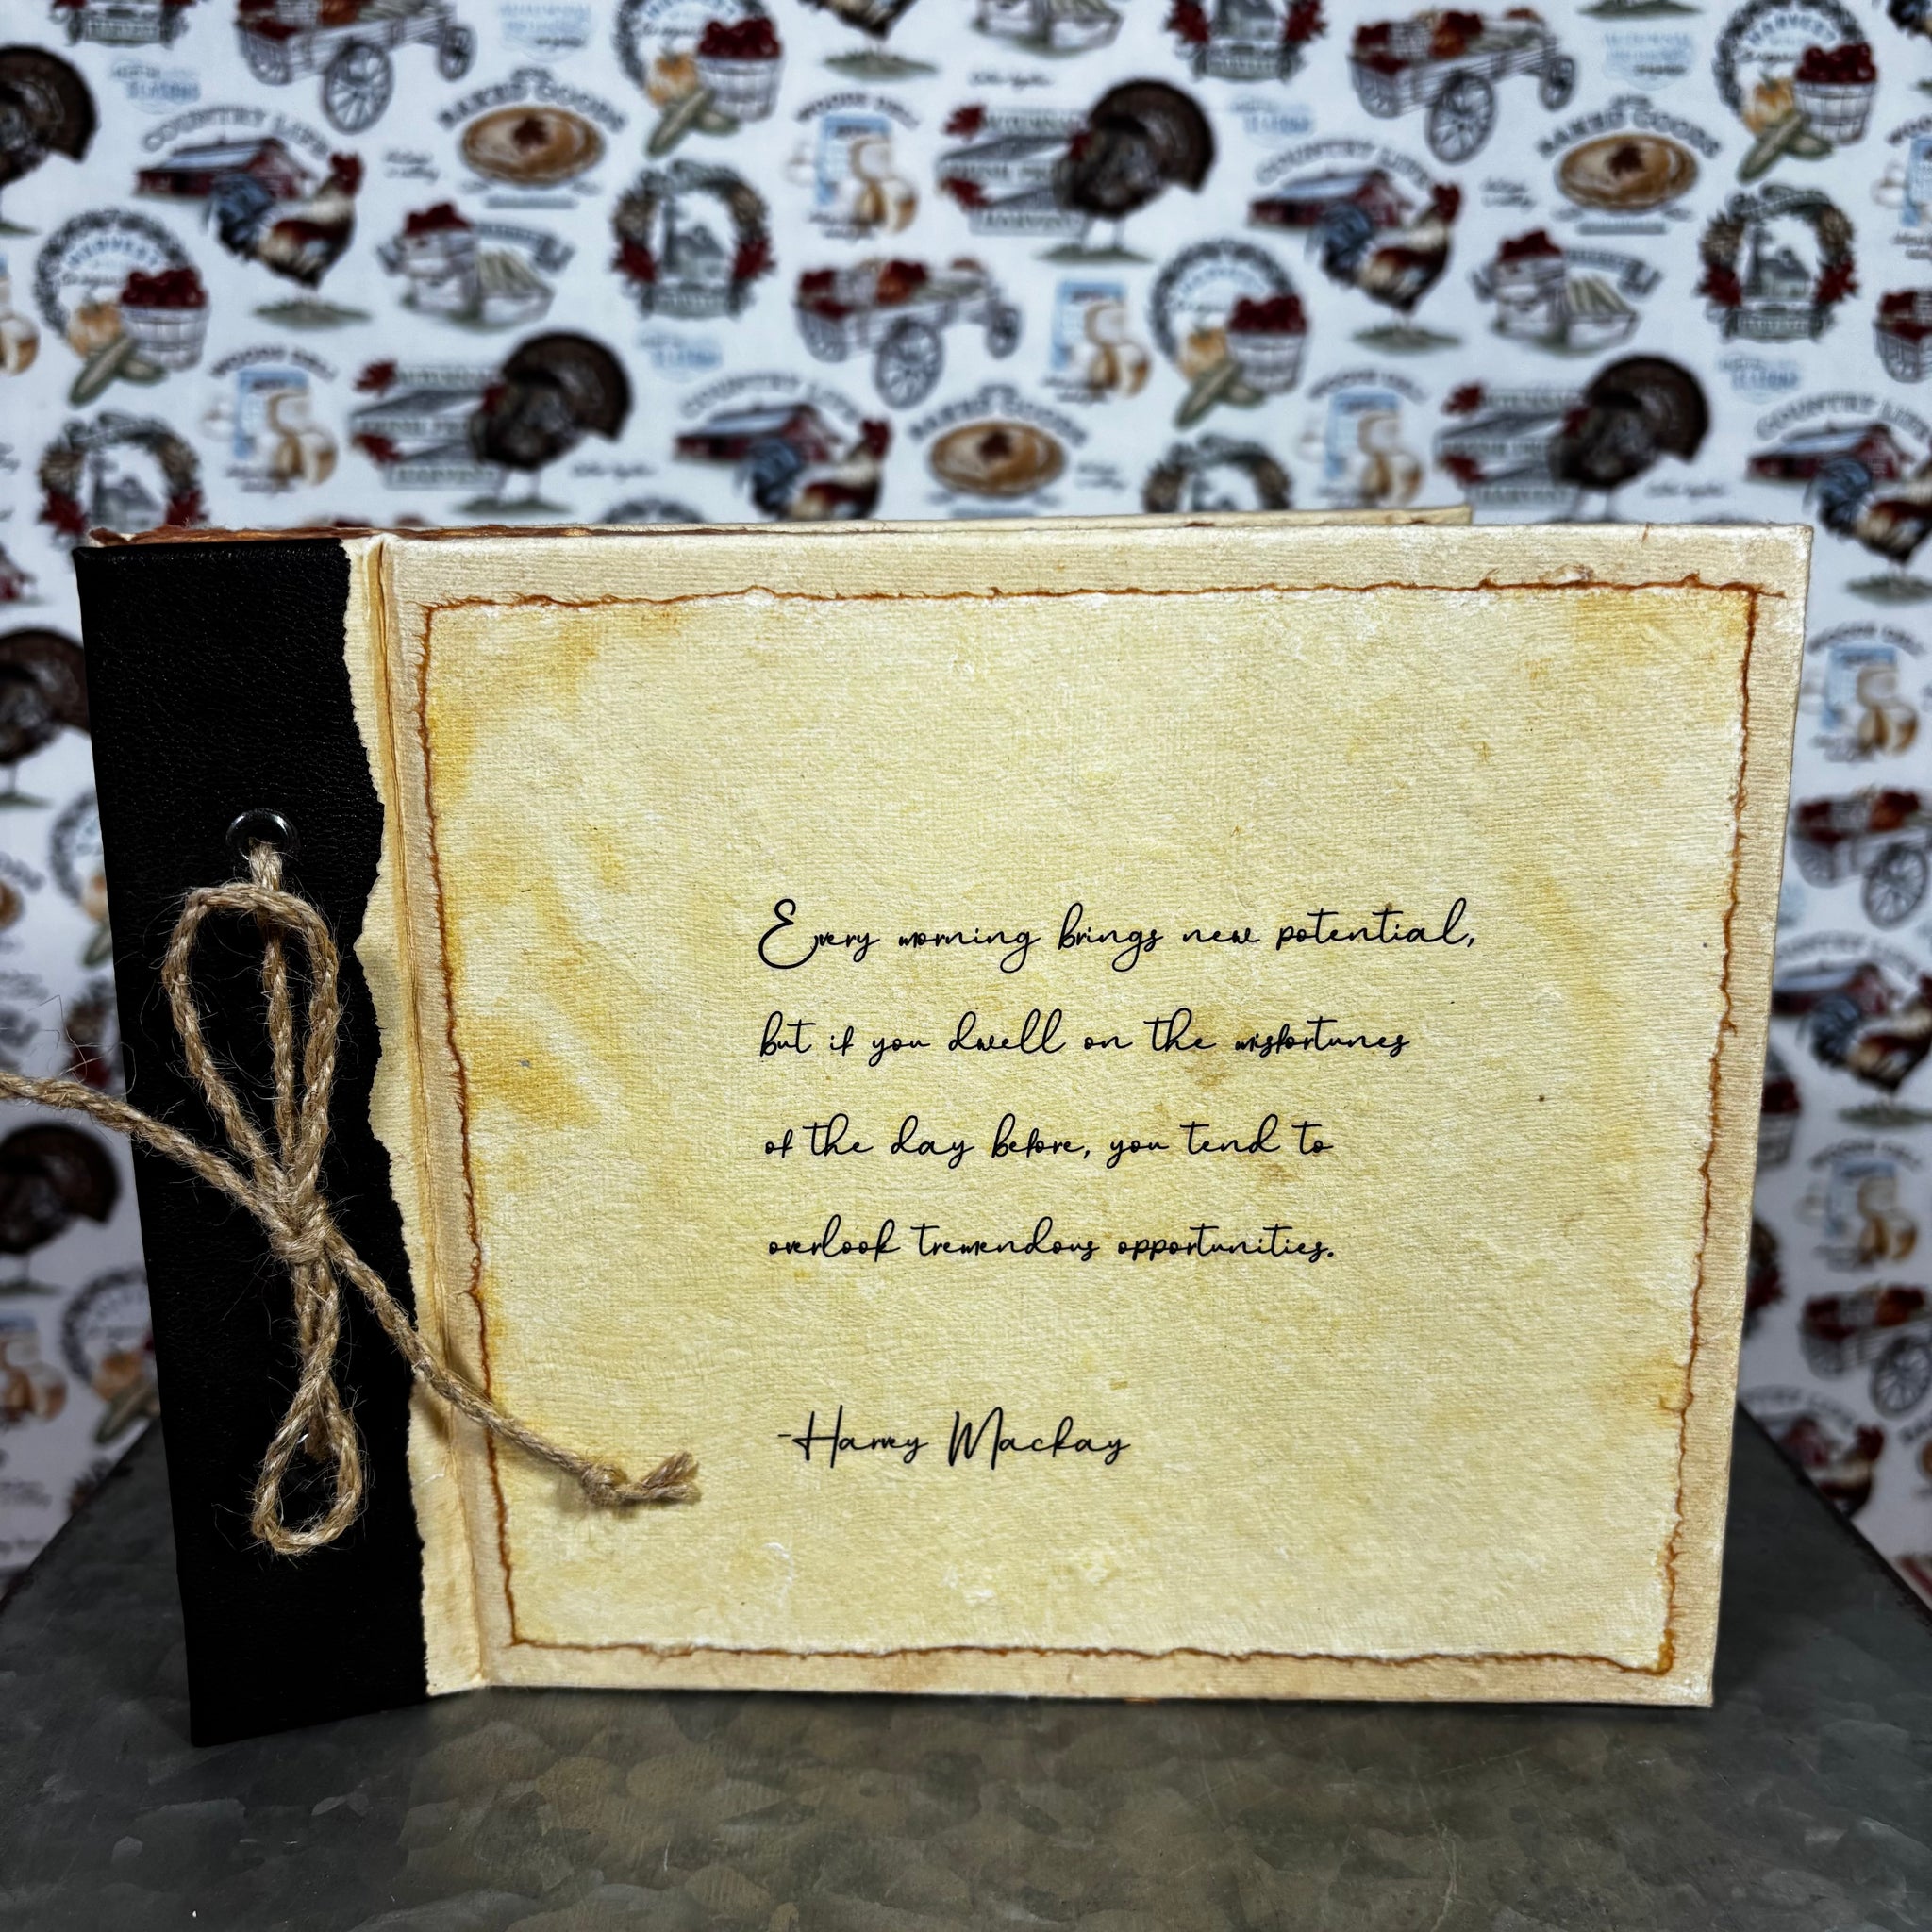 Every morning brings new potential,
but if you dwell on the misfortunes
of the day before, you tend to
overlook tremendous opportunities.
-Harvey Mackay
COUNTRY LIFE
BAKED GOODS
HARVEST